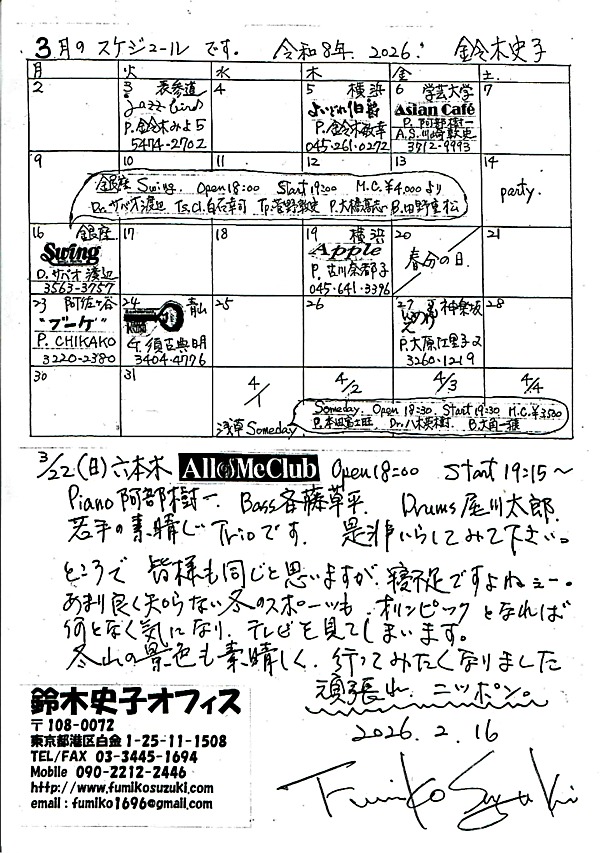 3月のスケジュールです。 令和8年. 2026. 鈴木史子
月 火 水 木 金 土
2 3 表参道 4 5 横浜 6 学芸大学 7
Jazz Bird
P. 鈴木みよ5
5474-2702
P. 鈴木敏幸
045-261-0272
Asian Café
P. 阿部樹一
A.S. 川崎
3512-9993
9 10 11 12 13 14
銀座 Swing Open 18:00 Start 19:00 M.C. ¥4,000より
Dr. サバオ渡辺 Ts.Cl. 白石幸司 Tp. 菅野 P. 大橋 B. 田野重松
party.
16 銀座 17 18 19 横浜 20 21
Swing
D. サバオ渡辺
3563-3757
Apple
P. 古川奈都子
045-641-3396
春分の日.
23 阿佐ヶ谷 24 青山 25 26 27 神楽坂 28
"ブーケ"
P. CHIKAKO
3220-2380
G. 須古典明
3404-4776
P. 大原江里子
3260-1219
30 31 4/1 4/2 4/3 4/4
浅草 Someday
Someday Open 18:30 Start 19:30 M.C. ¥3500
P. 本田富士旺 Dr. 八木秀樹 B. 大角一雅
3/22(日) 六本木 All of Me Club Open 18:00 Start 19:15〜
Piano 阿部樹一. Bass 斉藤草平. Drums 尾川太郎.
若手の素晴しTrioです. 是非いらしてみて下さい。
ところで 皆様も同じと思いますが、寝不足ですよねぇー。
あまり良く知らない冬のスポーツも. オリンピックとなれば
何となく気になり. テレビを見てしまいます。
冬山の景色も素晴しく. 行ってみたくなりました
頑張れ. ニッポン。
2026. 2. 16
Fumiko Suzuki
鈴木史子オフィス
〒108-0072
東京都港区白金 1-25-11-1508
TEL/FAX 03-3445-1694
Mobile 090-2212-2446
http://www.fumikosuzuki.com
email : fumiko1696@gmail.com